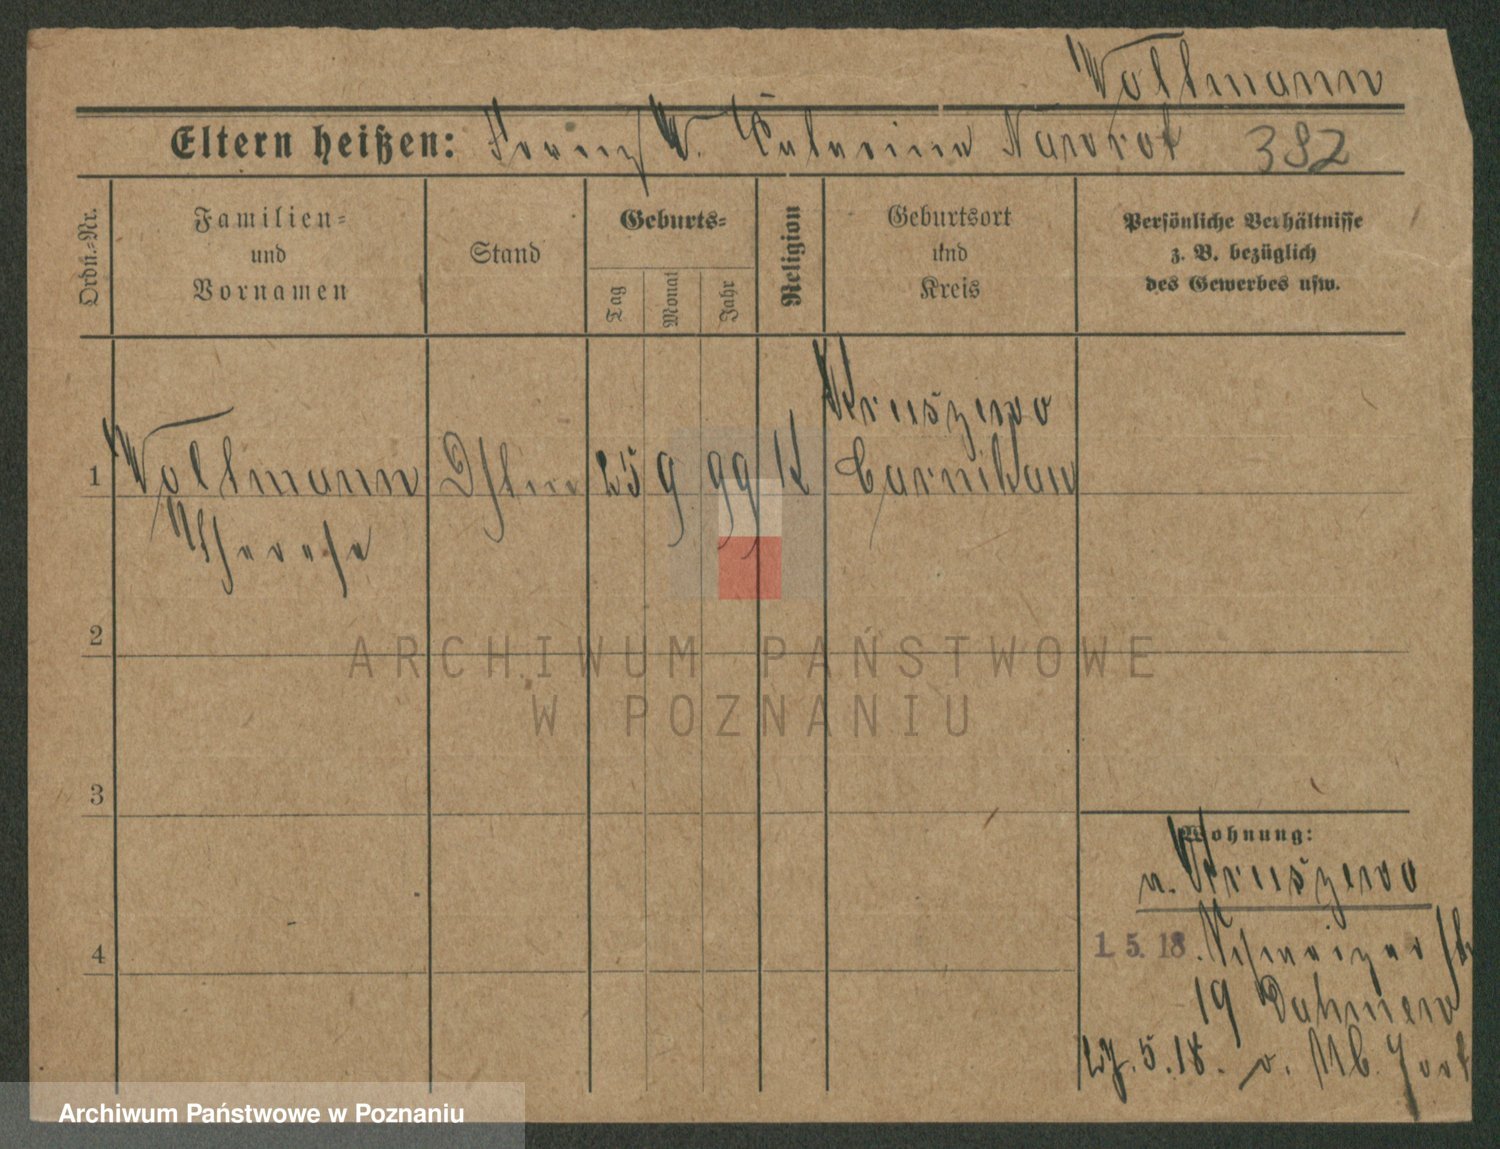 Woltmann
Eltern heißen: Franz W. Nawrot 382
Ordn.-Nr.
Familien-
und
Vornamen
Stand
Geburts-
Tag
Monat
Jahr
Religion
Geburtsort
und
Kreis
Persönliche Verhältnisse
z. B. bezüglich
des Gewerbes usw.
Kruszewo
1 Woltmann 25 9 99 K Czarnikau
Therese
2
ARCHIWUM PAŃSTWOWE
W POZNANIU
3
Wohnung:
n. Kruszewo
4
1. 5. 18.
19
5. 18. v.
Archiwum Państwowe w Poznaniu